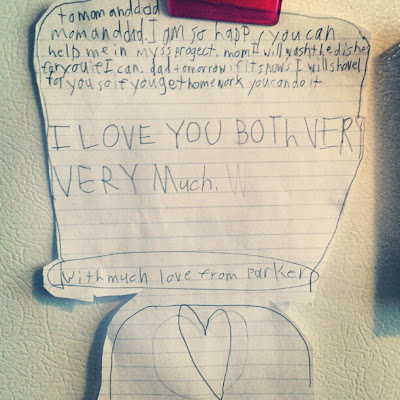 to mom and dad
mom and dad. I am so happy you can
help me in my ss project. mom I will wash the dishes
for you if I can. dad tomorrow if it snows I will shovel
for you so if you get home work you can do it
I LOVE YOU BOTh VERY
VERY Much. W
With much love from parker